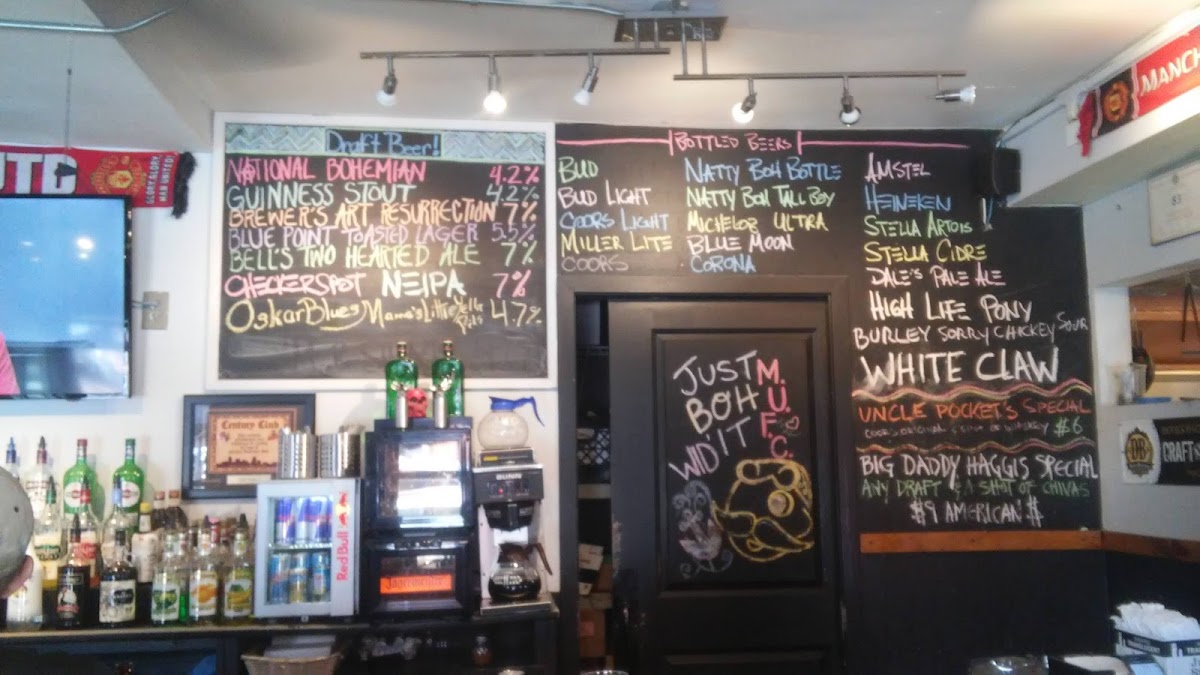 Draft Beer!
NATIONAL BOHEMIAN 4.2%
GUINNESS STOUT 4.2%
BREWER'S ART RESURRECTION 7%
BLUE POINT TOASTED LAGER 5.5%
BELL'S TWO HEARTED ALE 7%
CHECKERSPOT NEIPA 7%
OskarBlues Mama's Little Yella Pils 4.7%
BOTTLED BEERS
BUD
BUD LIGHT
COORS LIGHT
MILLER LITE
COORS
NATTY BOH BOTTLE
NATTY BOH TALL BOY
MICHELOB ULTRA
BLUE MOON
CORONA
AMSTEL
HEINEKEN
STELLA ARTOIS
STELLA CIDRE
DALE'S PALE ALE
HIGH LIFE PONY
BURLEY SORRY CHICKEY SOUR
WHITE CLAW
UNCLE POCKET'S SPECIAL
COORS ORIGINAL $6
BIG DADDY HAGGIS SPECIAL
ANY DRAFT & A SHOT OF CHIVAS
$9 AMERICAN $
JUST
BOH
WID'IT
M.U.F.C.
UTD
GLORY, GLORY,
MAN UNITED!
MANCH
Century Club
Red Bull
BUNN
Jägermeister
DB
CRAFT